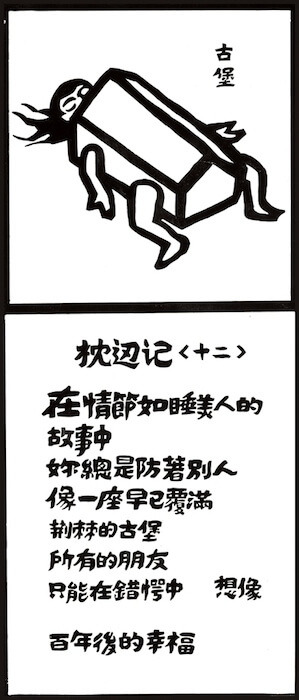 古堡
枕边记〈十二〉
在情節如睡美人的
故事中
妳總是防著別人
像一座早已覆滿
荆棘的古堡
所有的朋友
只能在錯愕中　想像
百年後的幸福